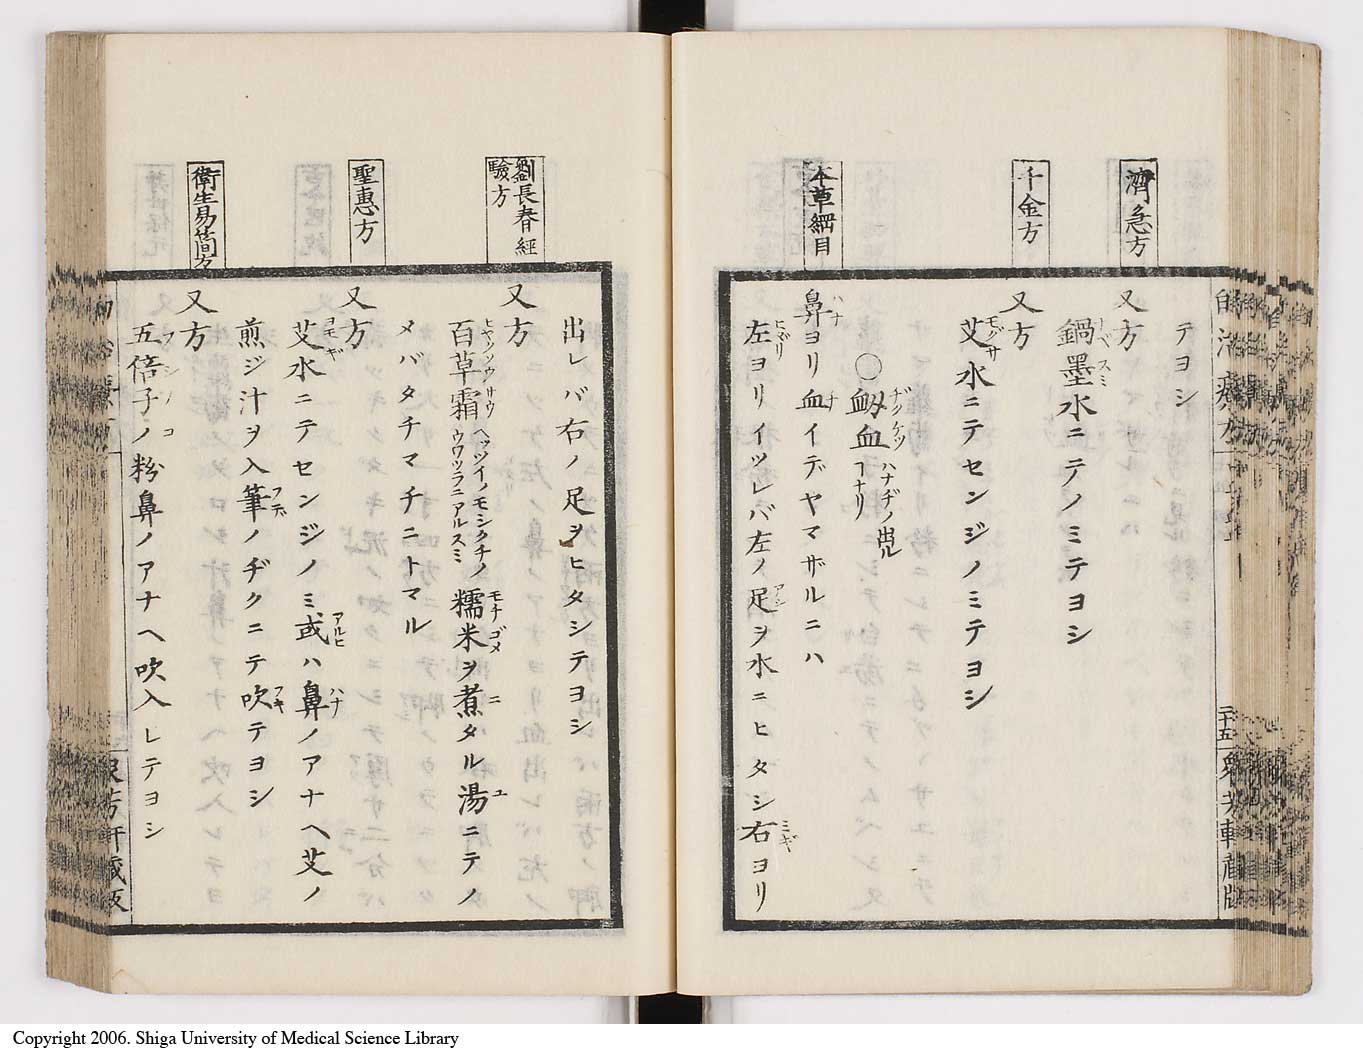 テヨシ
濟急方
又方
鍋墨水ニテノミテヨシ
千金方
又方
艾水ニテセンジノミテヨシ
モグサ
〇衂血
ハナヂノ出ル
コナリ
本草綱目
鼻ヨリ血イデヤマザルニハ
ハナ
左ヨリイヅレバ左ノ足ヲ水ニヒタシ右ヨリ
ヒダリ
アシ
ミギ
二十五
出レバ右ノ足ヲヒタシテヨシ
劉長春經
驗方
又方
百草霜
ヒヤクソウサウ
ヘッツイノモシクチノ
ウワツラニアルスミ
糯米ヲ煮タル湯ニテノ
モチゴメ
ニ
ユ
メバタチマチニトマル
聖惠方
又方
艾水ニテセンジノミ或ハ鼻ノアナヘ艾ノ
ヨモギ
アルヒ
ハナ
煎ジ汁ヲ入筆ノヂクニテ吹テヨシ
フデ
フキ
衛生易簡方
又方
五倍子ノ粉鼻ノアナヘ吹入レテヨシ
フシノコ
Copyright 2006. Shiga University of Medical Science Library